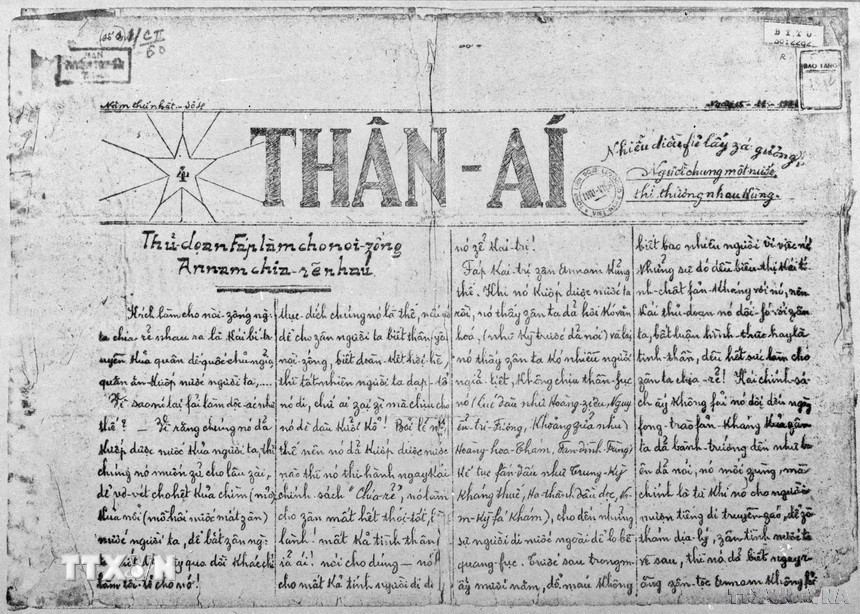 Năm thứ nhất - Số 4
4
THÂN-ÁI
Nhiễu điều fủ lấy zá gương,
Người chung một nước
thì thương nhau kùng.
Thủ-dọan Fáp làm cho noi-zống
Annam chia-rẽ nhau.
Kích làm cho nòi-zống ng-
ta chia rẽ nhau ra là kái bí-t
uyền kủa quân đế-quốc chủ-nghĩa
quân ăn-kướp nước người ta,...
Vì sao nó lại fải làm độc-ác như
thế? - Vì rằng chúng nó đã
kướp được nước kủa người ta, thì
chúng nó muốn zữ cho lâu zài,
để vơ-vét cho hết kủa chìm (mỏ)
kủa nổi (mồ hôi nước mắt zân)
nước người ta, để bắt zân ng-
qua đời khác
làm tôi-tớ cho nó!
mục-đích chúng nó là thế, nếu
để cho zân người ta biết thân-yêu
nòi-zống, biết đoàn-kết với nhau
thì tất nhiên người ta đạp-tổ
nó đi, chứ ai zại zì mà chịu cho
nó đè đầu kưỡi kổ! Bởi lẽ
thế nên nó đã kướp được nước
nào thì nó thi hành ngay kái
chính sách "chia-rẽ", nó làm
cho zân mất hết thói-tốt,
lành! mất kả tình thân
ái! nói cho đúng - nó
cho mất kả tính người đi để
nó zễ kai-trị!
Fáp kai-trị zân Annam kũng
thế. Khi nó kướp được nước ta
rồi, nó thấy zân ta đã hơi kó văn
hoá, (như kỳ trước đã nói) và lại
nó thấy zân ta kó nhiều người
nghĩa-liệt, không chịu thần-fục
nó (lúc đầu như Hoàng-ziệu, Nguy
ễn-tri-Fương, khoảng zữa như
Hoàng-hoa-Thám, Fan-đình-Fùng,
kế tục fần đầu như Trung-kỳ
kháng thuế, Hà-thành đầu độc,
m-kỳ fá khám), cho đến những
sự người đi nước ngoài để lo bề
quang-fục. Trước sau trong mấy
mươi năm, đổ máu không
biết bao nhiêu người vì việc nước
Những sự đó đều biểu-thị kái tí
nh-chất fản-kháng với nó, nên
kái thủ-đoạn nó đối-fó với zân
ta, bất luận hình-thức hay là
tinh-thần, đều hết sức làm cho
zân ta chia-rẽ! Kái chính-sá-
ch ấy không fải nó đợi đến ngày
fong-trào fản-kháng kủa zân
ta đã bành-trướng đến như
đã nói, nó mới zùng, mà
chính là từ khi nó cho người
mượn tiếng đi truyền-záo, để zò
thám địa-lý, zân tình nước ta
về sau, thì nó đã biết ngay
rằng zân-tộc Annam không fải
TTXVN